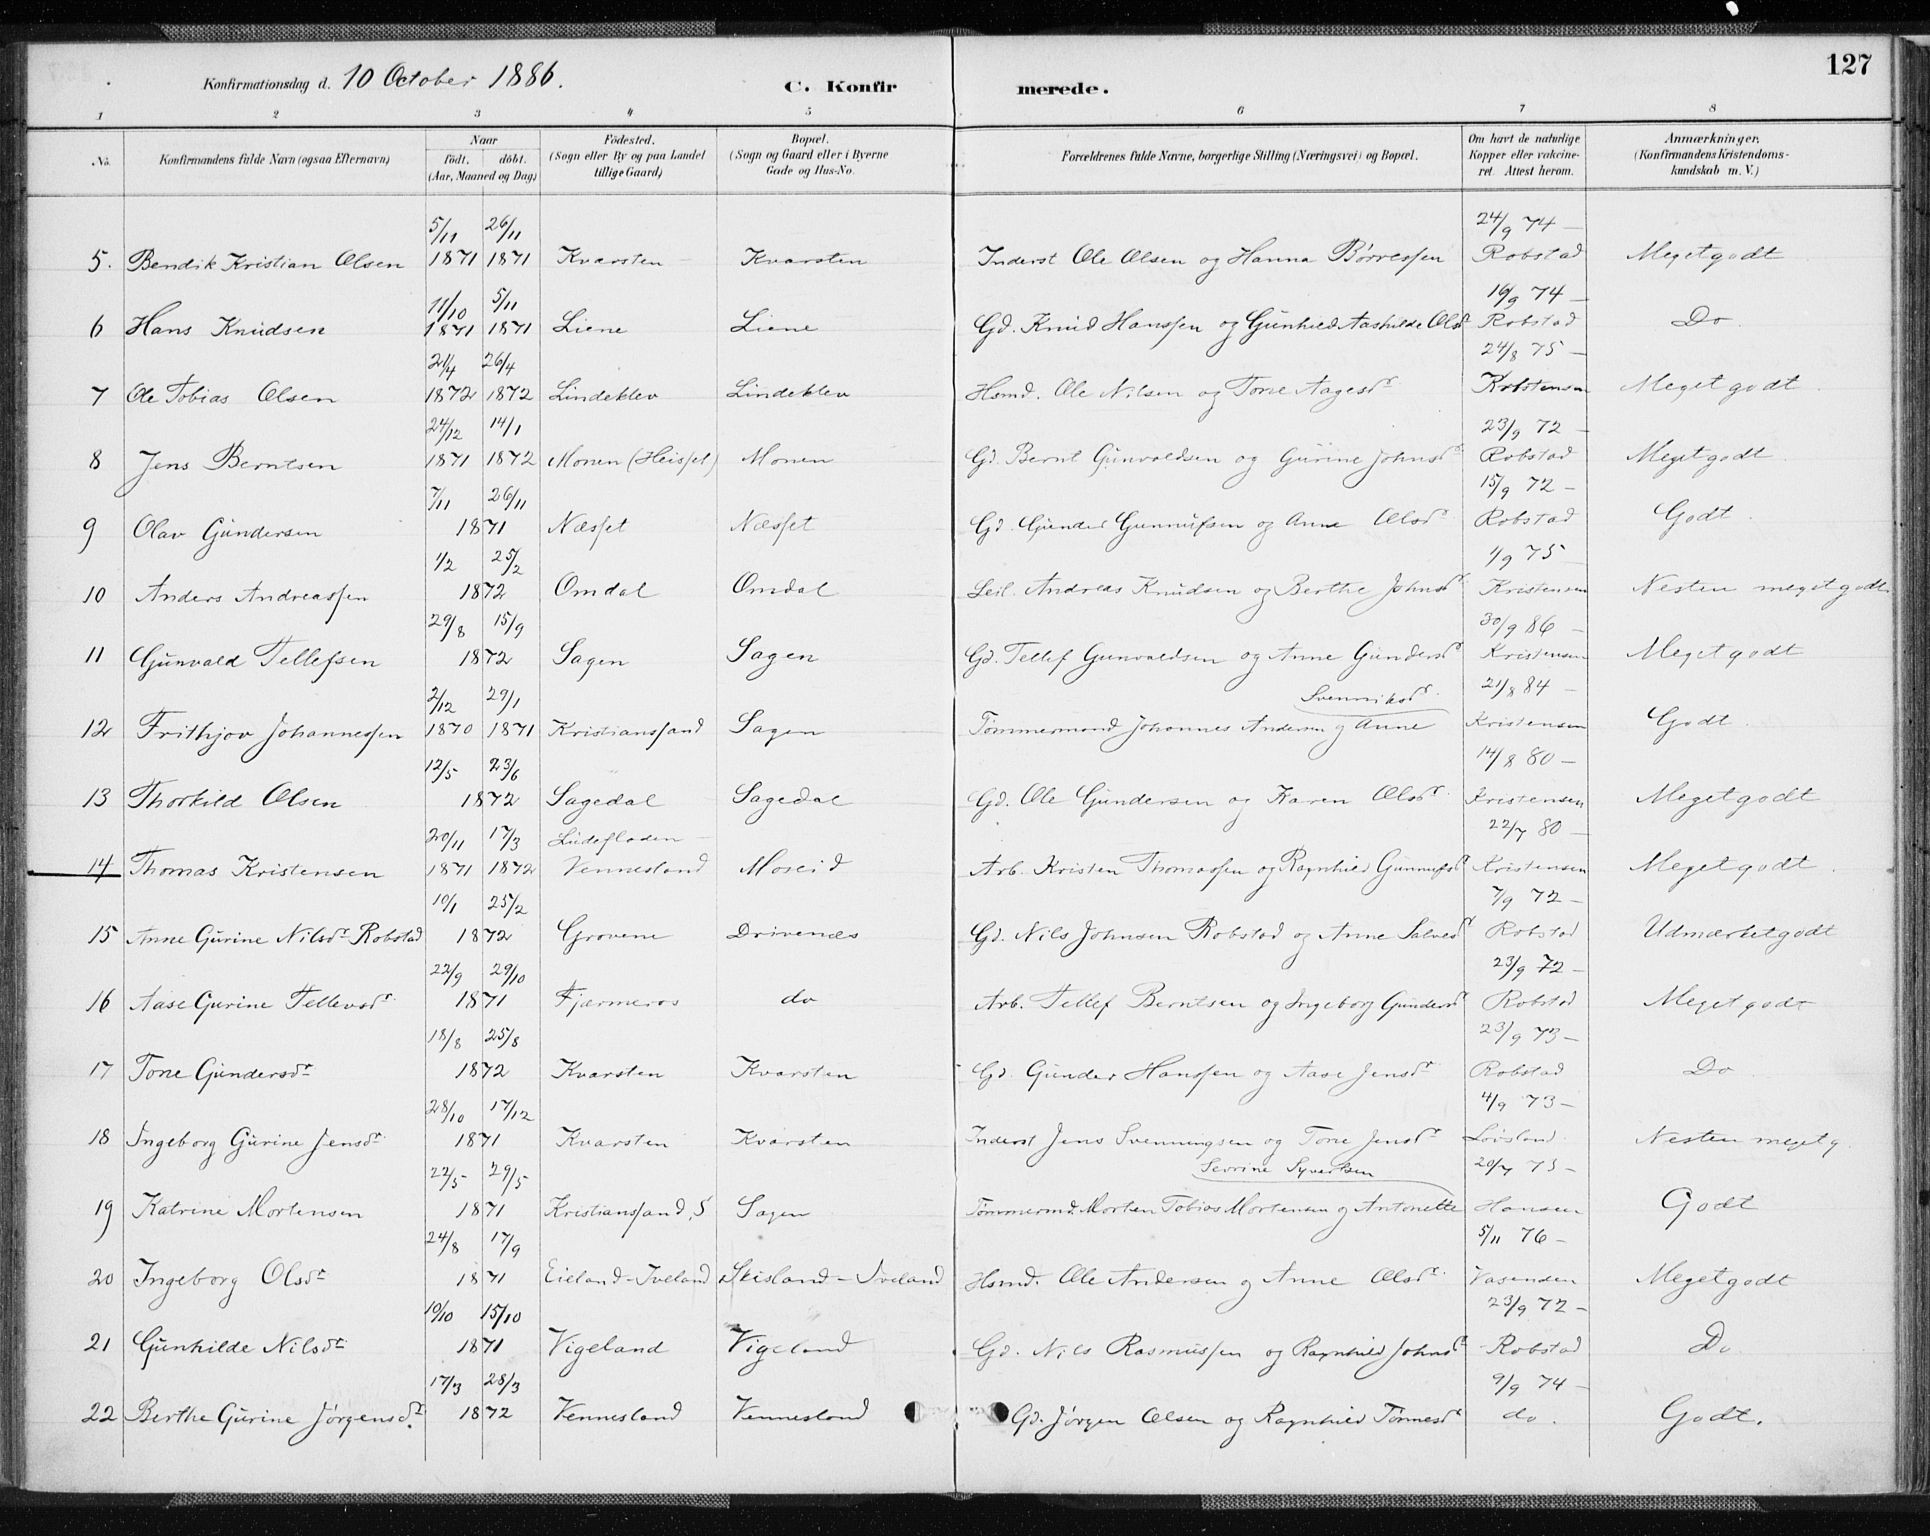 127
Konfirmationsdag d. 10 October 1886. C. Konfirmerede.
1 2 3 4 5 6 7 8
No. Konfirmandens fulde Navn (ogsaa Efternavn) Naar födt. döbt. (Aar, Maaned og Dag) Födested. (Sogn eller By og paa Landet tillige Gaard) Bopæl. (Sogn og Gaard eller i Byerne Gade og Hus-No. Forældrenes fulde Navne, borgerlige Stilling (Næringsvei) og Bopæl. Om havt de naturlige Kopper eller vakcineret. Attest herom. Anmærkninger, (Konfirmandens Kristendomskundskab m. V.)
5/11 26/11 24/9 74 —
5. Bendik Kristian Olsen 1871 1871 Kvarsten Kvarsten Inderst Ole Olsen og Hanna Børresen Robstad Meget godt
11/10 5/11 16/9 74 —
6 Hans Knudsen 1871 1871 Liene Liene Gd. Knud Hanssen og Gunhild Aashilde Olsdr Robstad Do
21/4 26/4 24/8 75 —
7 Ole Tobias Olsen 1872 1872 Lindeklev Lindeklev Hsmd. Ole Nilsen og Tone Aagesdr Kristensen Meget godt
24/12 14/1 23/9 72 —
8 Jens Berntsen 1871 1872 Monen (Heisset) Monen Gd. Bernt Gunvaldsen og Gurine Johnsdr Robstad Meget godt
7/11 26/11 15/9 72 —
9 Olav Gundersen 1871 Næsset Næsset Gd. Gunder Gunnufsen og Anne Olsdr Robstad Godt
1/2 25/2 1/9 75 —
10 Anders Andreassen 1872 Omdal Omdal Leil. Andreas Knudsen og Berthe Johnsdr Kristensen Nesten meget godt.
29/8 15/9 30/9 86 —
11 Gunvald Tellefsen 1872 Sagen Sagen Gd. Tellef Gunvaldsen og Anne Gundersdr Kristensen Meget godt
2/12 29/1 Svenniksdr 21/8 84 —
12 Frithjov Johannessen 1870 1871 Kristianssand Sagen Tømmermand Johannes Andersen og Anne Kristensen Godt
12/5 23/6 14/8 80 —
13 Thorkild Olsen 1872 Sagedal Sagedal Gd. Ole Gundersen og Karen Olsdr Kristensen Meget godt
20/11 17/3 Ludefladen 22/7 80 —
14 Thomas Kristensen 1871 1872 Vennesland Moseid Arb. Kristen Thomassen og Ragnhild Gunnufsdr Kristensen Meget godt
10/1 25/2 7/9 72 —
15 Anne Gurine Nilsdr Robstad 1872 Grovene Drivenæs Gd. Nils Johnsen Robstad og Anne Salvesdr Robstad Udmærket godt
22/9 29/10 23/9 72 —
16 Aase Gurine Tellevsdr 1871 Fjermeros do Arb. Tellef Berntsen og Ingeborg Gundersdr Robstad Meget godt
18/8 25/8 23/9 73 —
17 Tone Gundersdr 1872 Kvarsten Kvarsten Gd. Gunder Hanssen og Aase Jensdr Robstad Do
28/10 17/12 4/9 73 —
18 Ingeborg Gurine Jensdr 1871 Kvarsten Kvarsten Inderst Jens Svenningsen og Tone Jensdr Løisland Nesten meget g.
22/5 29/5 Sevrine Syvertsen 20/7 75 —
19 Katrine Mortensen 1871 Kristianssand, S Sagen Tømmermd. Morten Tobias Mortensen og Antonette Hansen Godt
24/8 17/9 5/11 76 —
20 Ingeborg Olsdr 1871 Eieland - Iveland Skisland - Iveland Hsmd. Ole Andersen og Anne Olsdr Vasenden Meget godt
10/10 15/10 23/9 72 —
21 Gunhilde Nilsdr 1871 Vigeland Vigeland Gd. Nils Rasmussen og Ragnhild Johnsdr Robstad Do
17/3 28/3 9/9 74 —
22 Berthe Gurine Jørgensdr. 1872 Vennesland Vennesland Gd. Jørgen Olsen og Ragnhild Tønnesdr do. Godt.